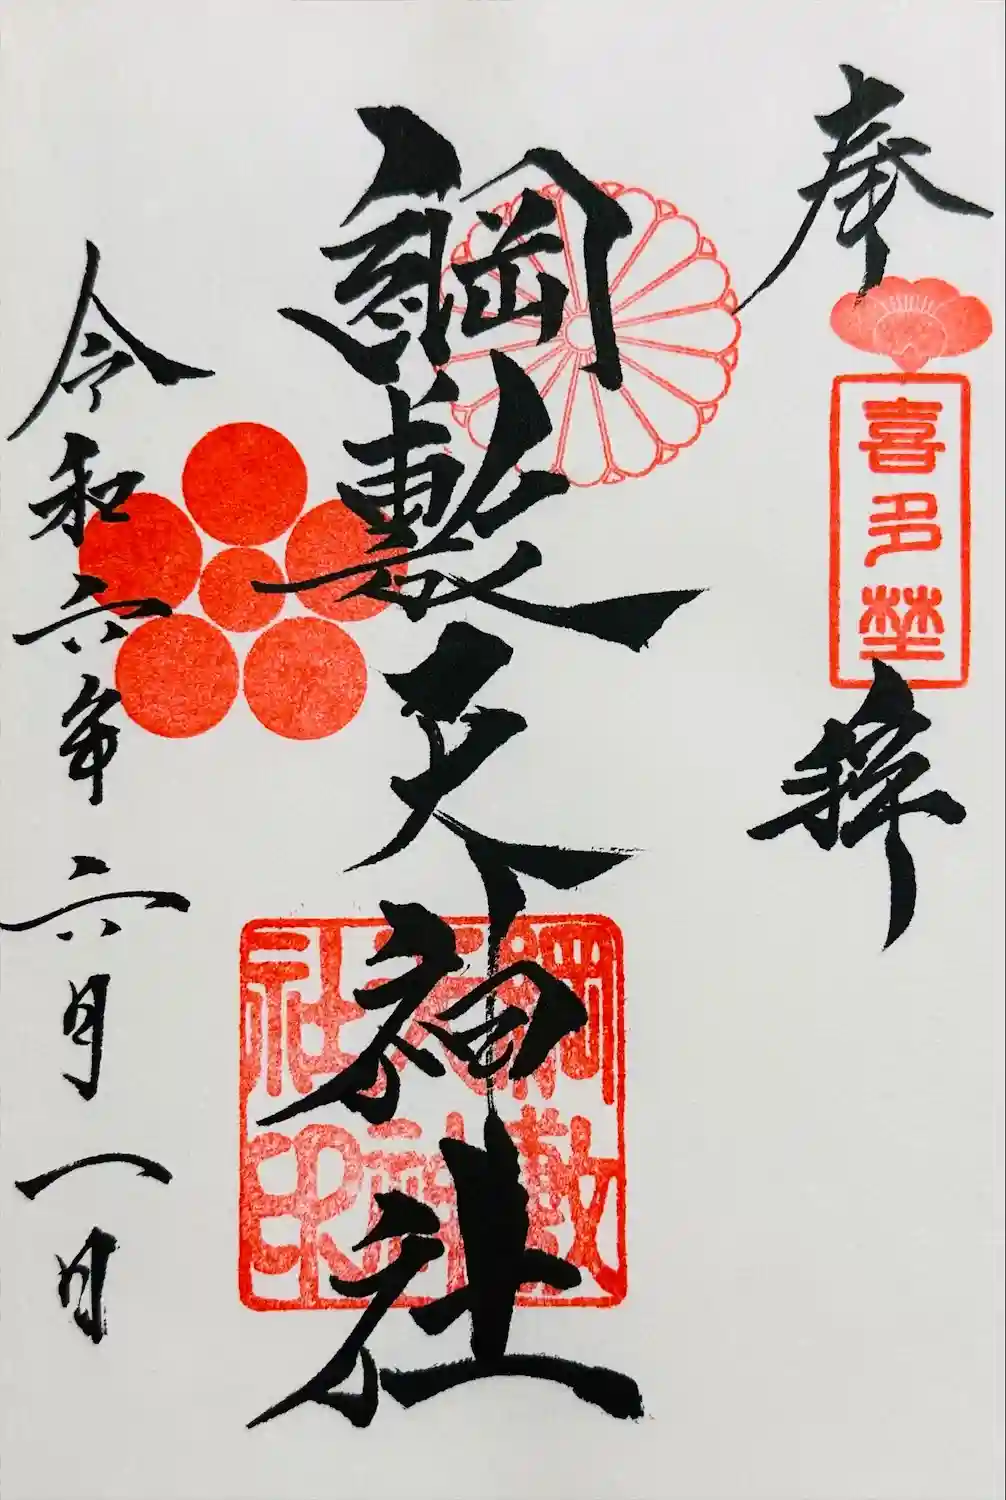 奉拝
喜多埜
綱敷天神社
綱敷天神社印
令和六年六月一日